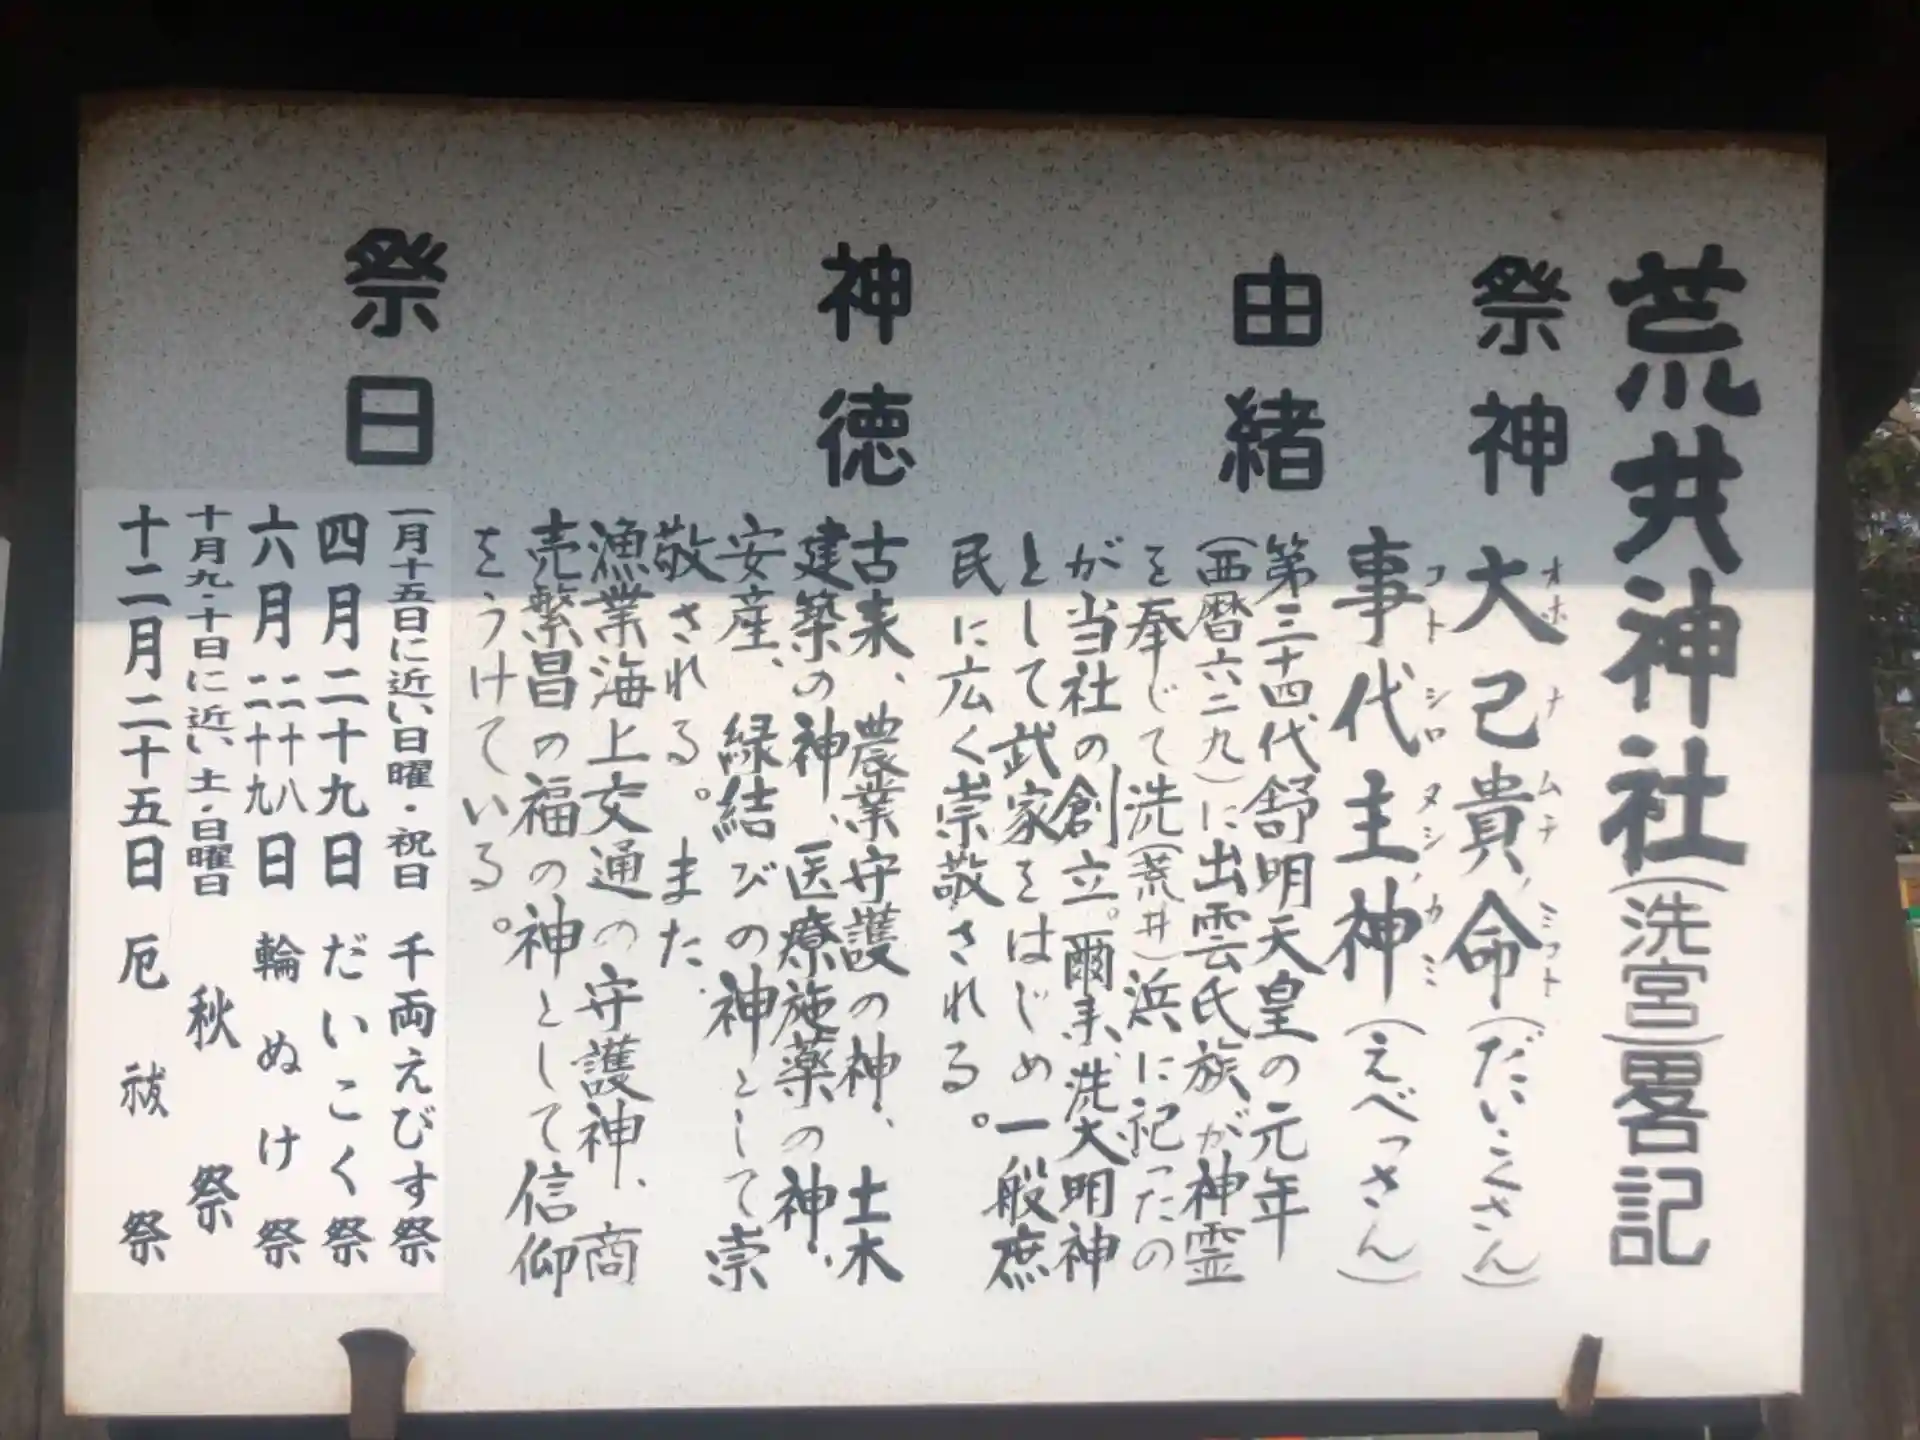 荒井神社(洗宮)畧記
祭神
大己貴命(だいこくさん)
オホナムチノミコト
事代主神(えべっさん)
コトシロヌシノカミ
由緒
第三十四代舒明天皇の元年
(西暦六二九)に出雲氏族が神霊
を奉じて洗(荒井)浜に記ったの
が当社の創立。爾来、洗大明神
として武家をはじめ一般庶
民に広く崇敬される。
神徳
古来、農業守護の神、土木
建築の神、医療施薬の神、
安産、縁結びの神として崇
敬される。また、
漁業海上交通の守護神、商
売繁昌の福の神として信仰
をうけている。
祭日
一月十五日に近い日曜・祝日 千両えびす祭
四月二十九日 だいこく祭
六月二十八二十九日 輪ぬけ祭
十月九・十日に近い土・日曜日 秋祭
十二月二十五日 厄祓祭